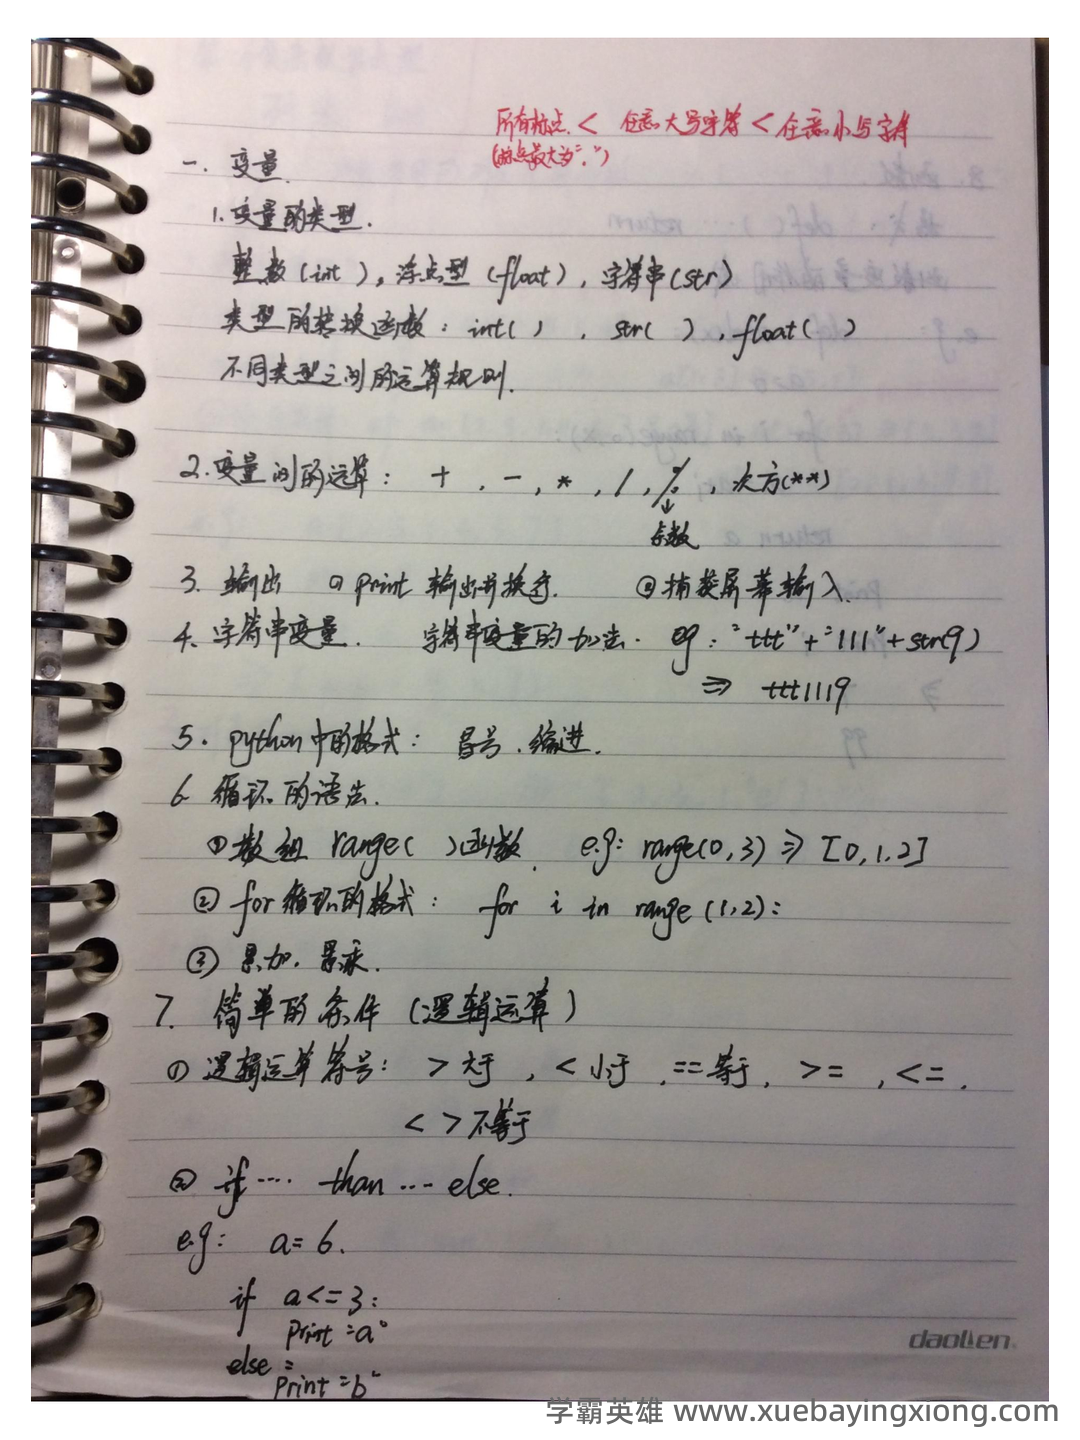 所有标点 < 任意大写字符 < 任意小写字符
(标点最大为“,”)
一. 变量.
1. 变量的类型.
整数(int), 浮点型(float), 字符串(str)
类型的转换函数: int( ), str( ), float( )
不同类型之间的运算规则.
2. 变量间的运算: +, -, *, /, %, 次方(**)
↓
余数
3. 输出 ①print 输出并换行. ②捕获屏幕输入.
4. 字符串变量. 字符串变量的加法. eg: "ttt"+"111"+str(9)
⇒ ttt1119
5. python中的格式: 冒号. 缩进.
6. 循环的语法.
①数组 range( )函数. e.g: range(0,3) ⇒ [0,1,2]
② for循环的格式: for i in range (1,2):
③ 累加. 累乘.
7. 简单的条件(逻辑运算)
① 逻辑运算符号: > 大于, < 小于, == 等于, >=, <=,
< > 不等于
② if .... than ... else.
e.g: a=6.
if a<=3:
print "a"
else:
print "b"
daolen
学霸英雄 www.xuebayingxiong.com